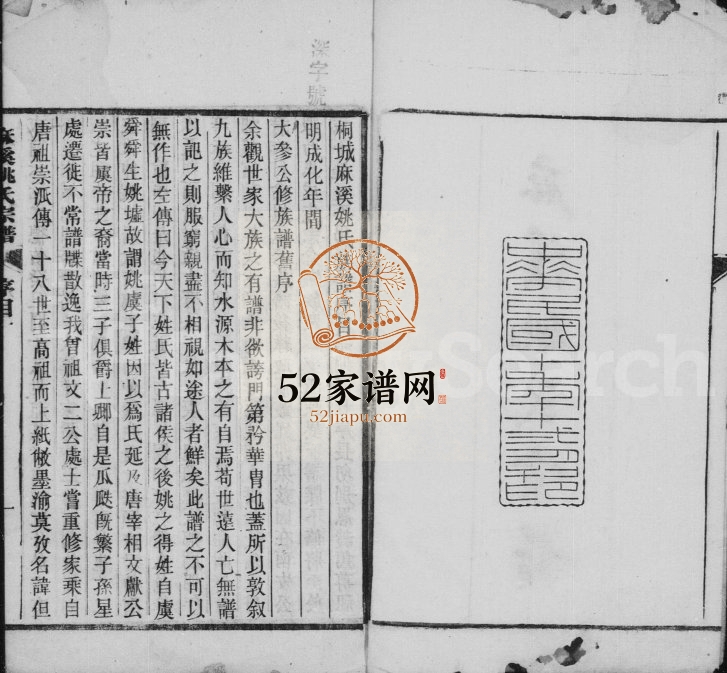 深字號
中華民國
桐城麻溪姚氏
明成化年間
大參公修族譜舊序
余觀世家大族之有譜非欲誇門第矜華胄也蓋所以敦敘
九族維繫人心而知水源木本之有自焉苟世遠人亡無譜
以記之則服窮親盡不相視如途人者鮮矣此譜之不可以
無作也左傳曰今天下姓氏皆古諸侯之後姚之得姓自虞
舜舜生姚墟故謂姚虞子姓因以為氏延及唐宰相文獻公
崇皆虞帝之裔當時三子俱爵上卿自是瓜瓞旣繁子孫星
處遷徙不常譜牒散逸我曾祖文二公處士嘗重修家乘自
唐祖崇派傳一十八世至高祖而上紙敝墨渝莫攷名諱但
麻溪姚氏宗譜
序目
一
52家谱网
52jiapu.com
Search